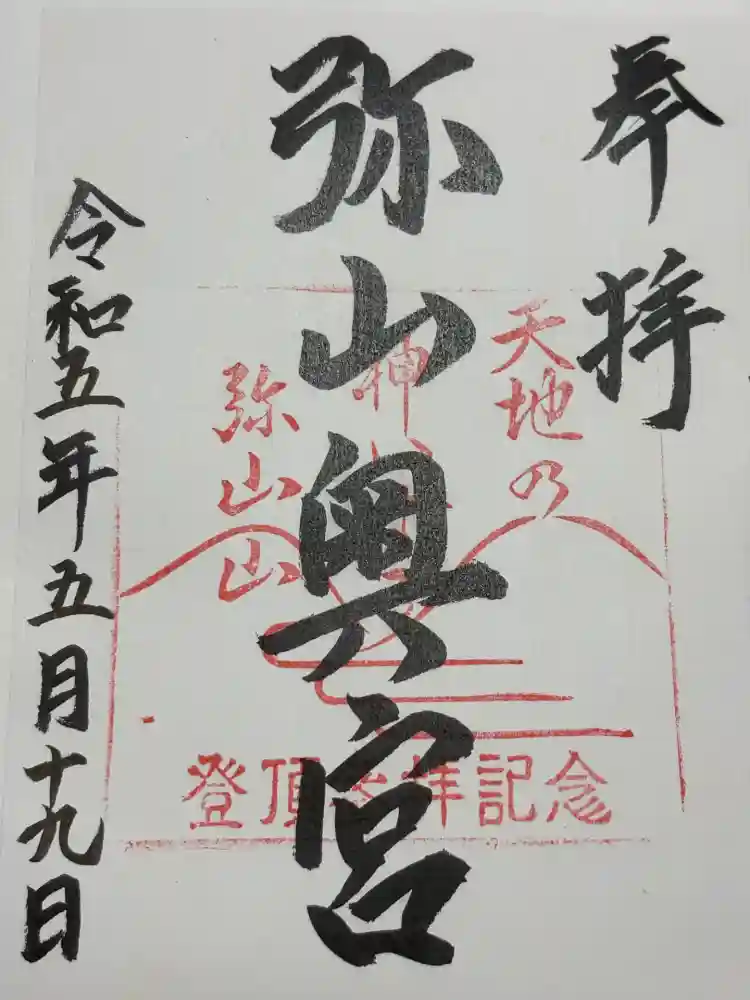 奉拝
天地の
神
弥山奥宮
弥山山
登頂参拝記念
令和五年五月十九日